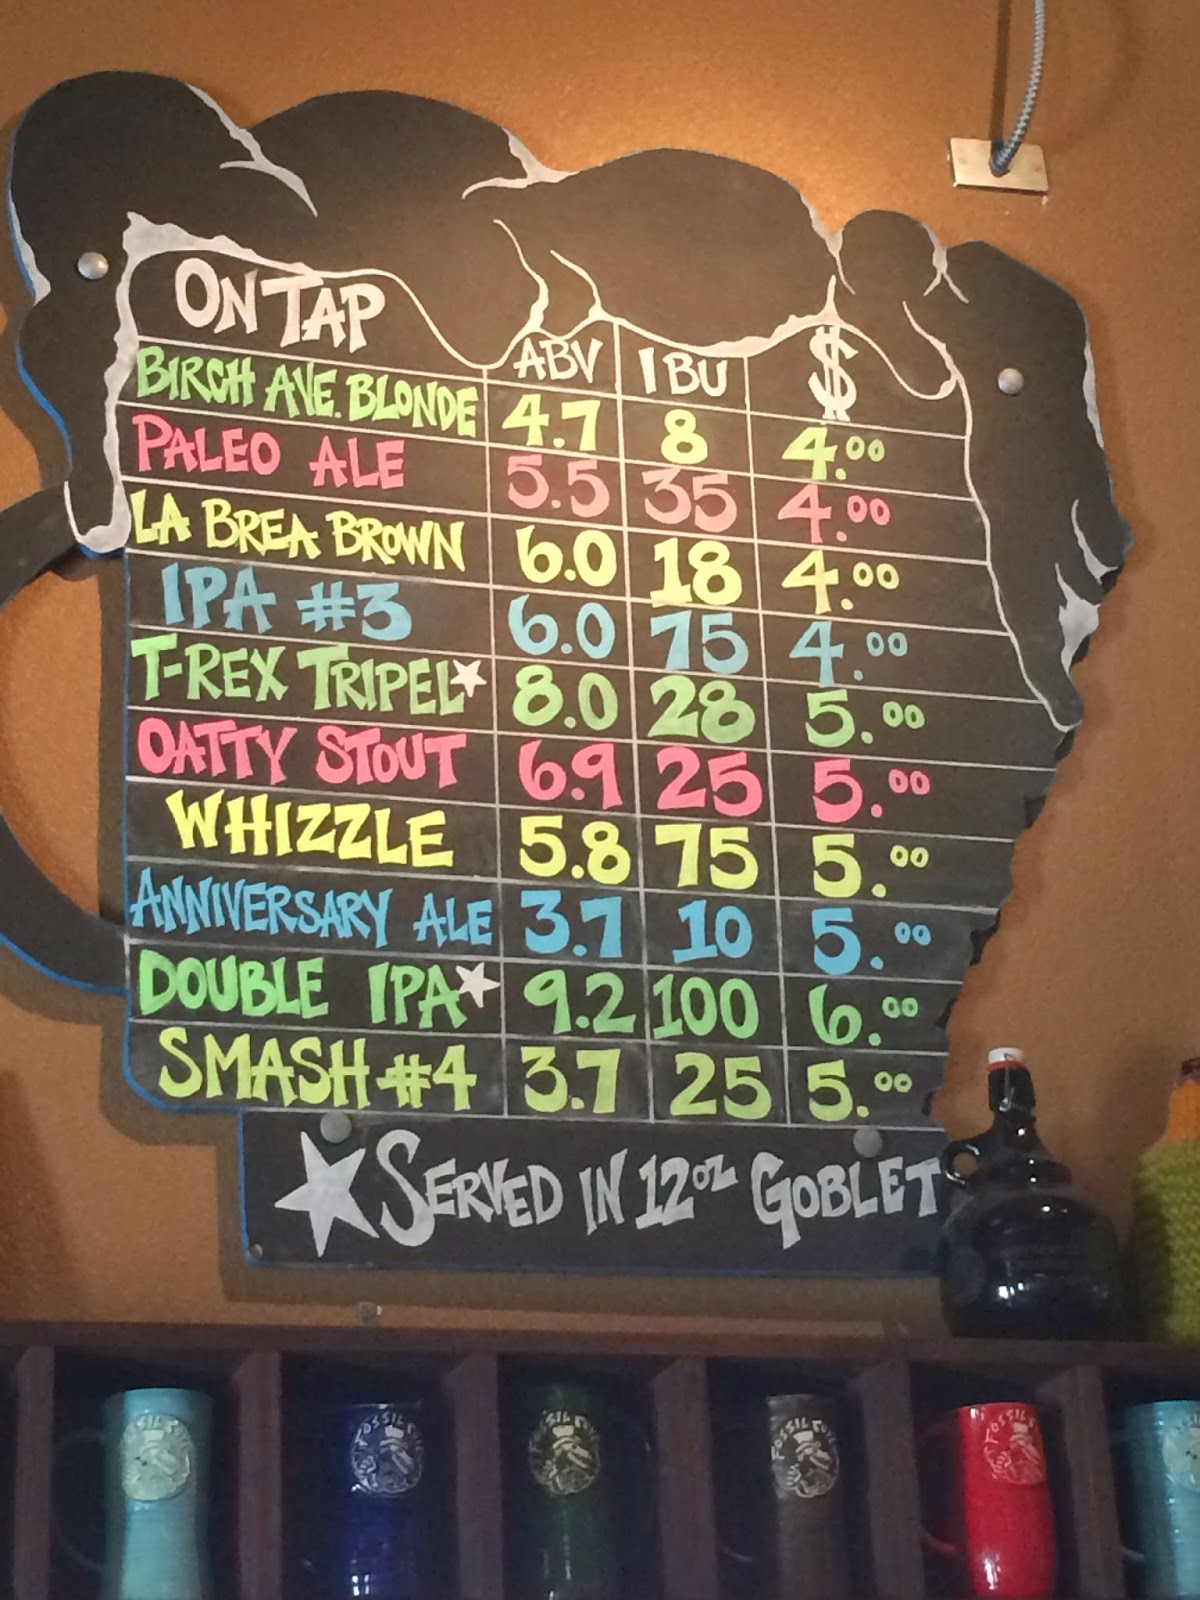 ON TAP ABV IBU $
BIRCH AVE. BLONDE 4.7 8 4.00
PALEO ALE 5.5 35 4.00
LA BREA BROWN 6.0 18 4.00
IPA #3 6.0 75 4.00
T-REX TRIPEL★ 8.0 28 5.00
OATTY STOUT 6.9 25 5.00
WHIZZLE 5.8 75 5.00
ANNIVERSARY ALE 3.7 10 5.00
DOUBLE IPA★ 9.2 100 6.00
SMASH #4 3.7 25 5.00
★SERVED IN 12oz GOBLET
FOSSIL
FOSSIL
FOSSIL COVE
FOSSIL